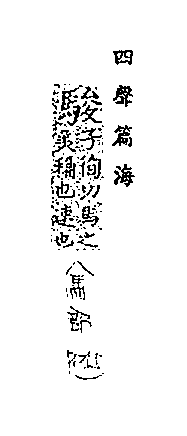 四聲篇海
子徇切馬之
美稱也速也
馬部